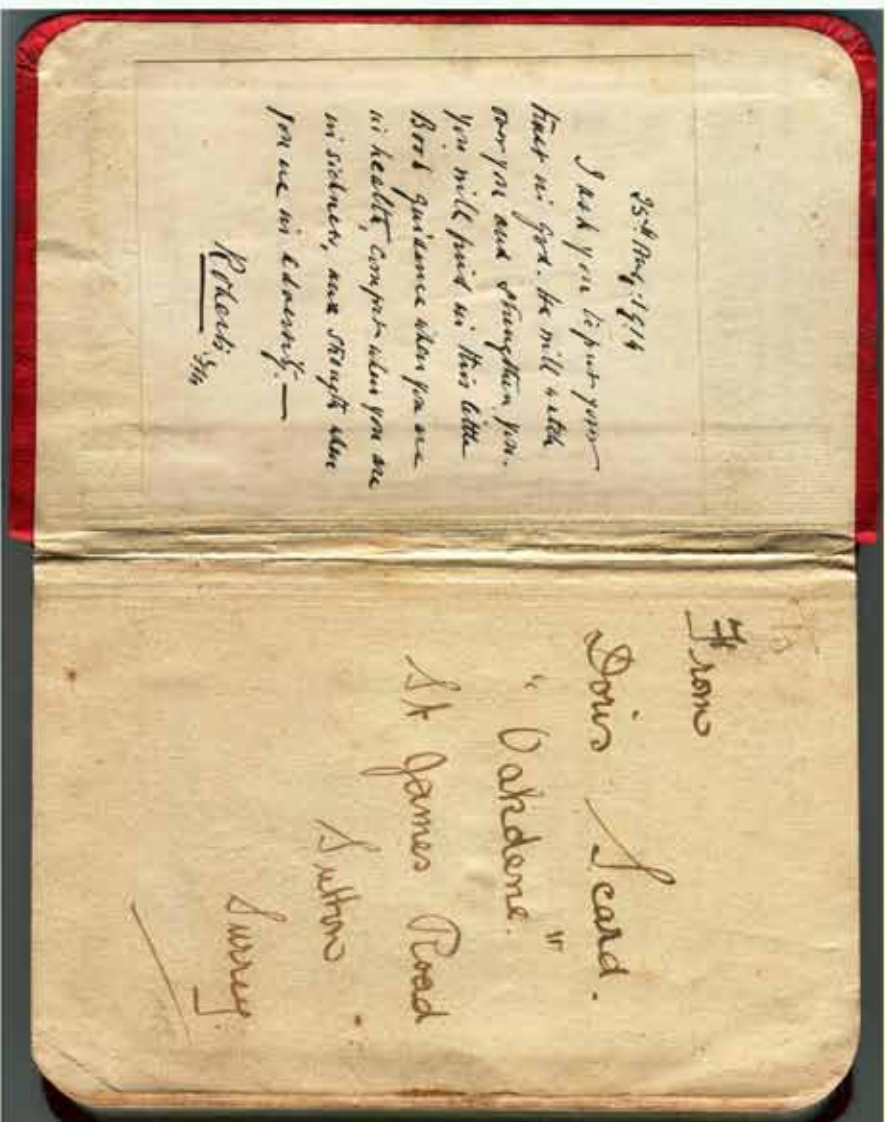 25th Aug: 1914
I ask you to put your
trust in God. He will watch
over you and strengthen you.
You will find in this little
Book guidance when you are
in health, comfort when you are
in sickness, and strength when
you are in adversity.—
Roberts
From
Doris Scard.
"Oakdene."
St James Road
Sutton.
Surrey.